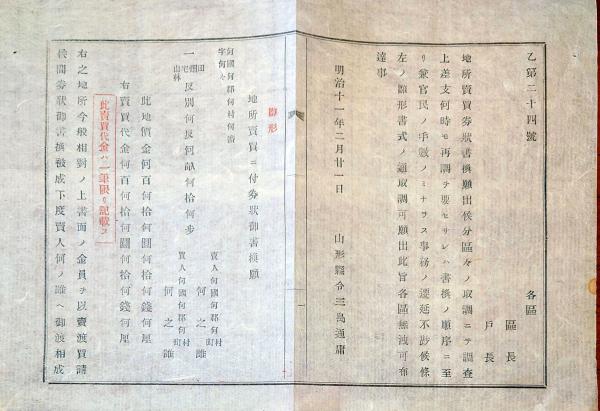 乙第二十四號
各區
區長
戸長
地所賣買券狀書換願出候分區々ノ取調ニテ調査
上差支何時モ再調ヲ要セサレハ書換ノ順序ニ至
リ兼官民ノ手數ノミナラス事務ノ遷延不尠候條
左ノ雛形書式ノ通取調可願出此旨各區無洩可布
達事
明治十一年二月廿一日
山形縣令三島通庸
雛形
地所賣買ニ付券狀御書換願
何國何郡何村何番
字何々
一
田
畑
宅
山林
反別何反何畝何拾何歩
賣人何國何郡何村
町
何之誰
買人何國何郡何村
町
何之誰
此地價金何百何拾何圓何拾何錢何厘
右賣買代金何百何拾何圓何拾何錢何厘
此賣買代金ハ一筆限リ記載ス
右之地所今般相對ノ上書面ノ金員ヲ以賣渡買請
候間券狀御書換被成下度賣人何ノ誰ヘ御渡相成